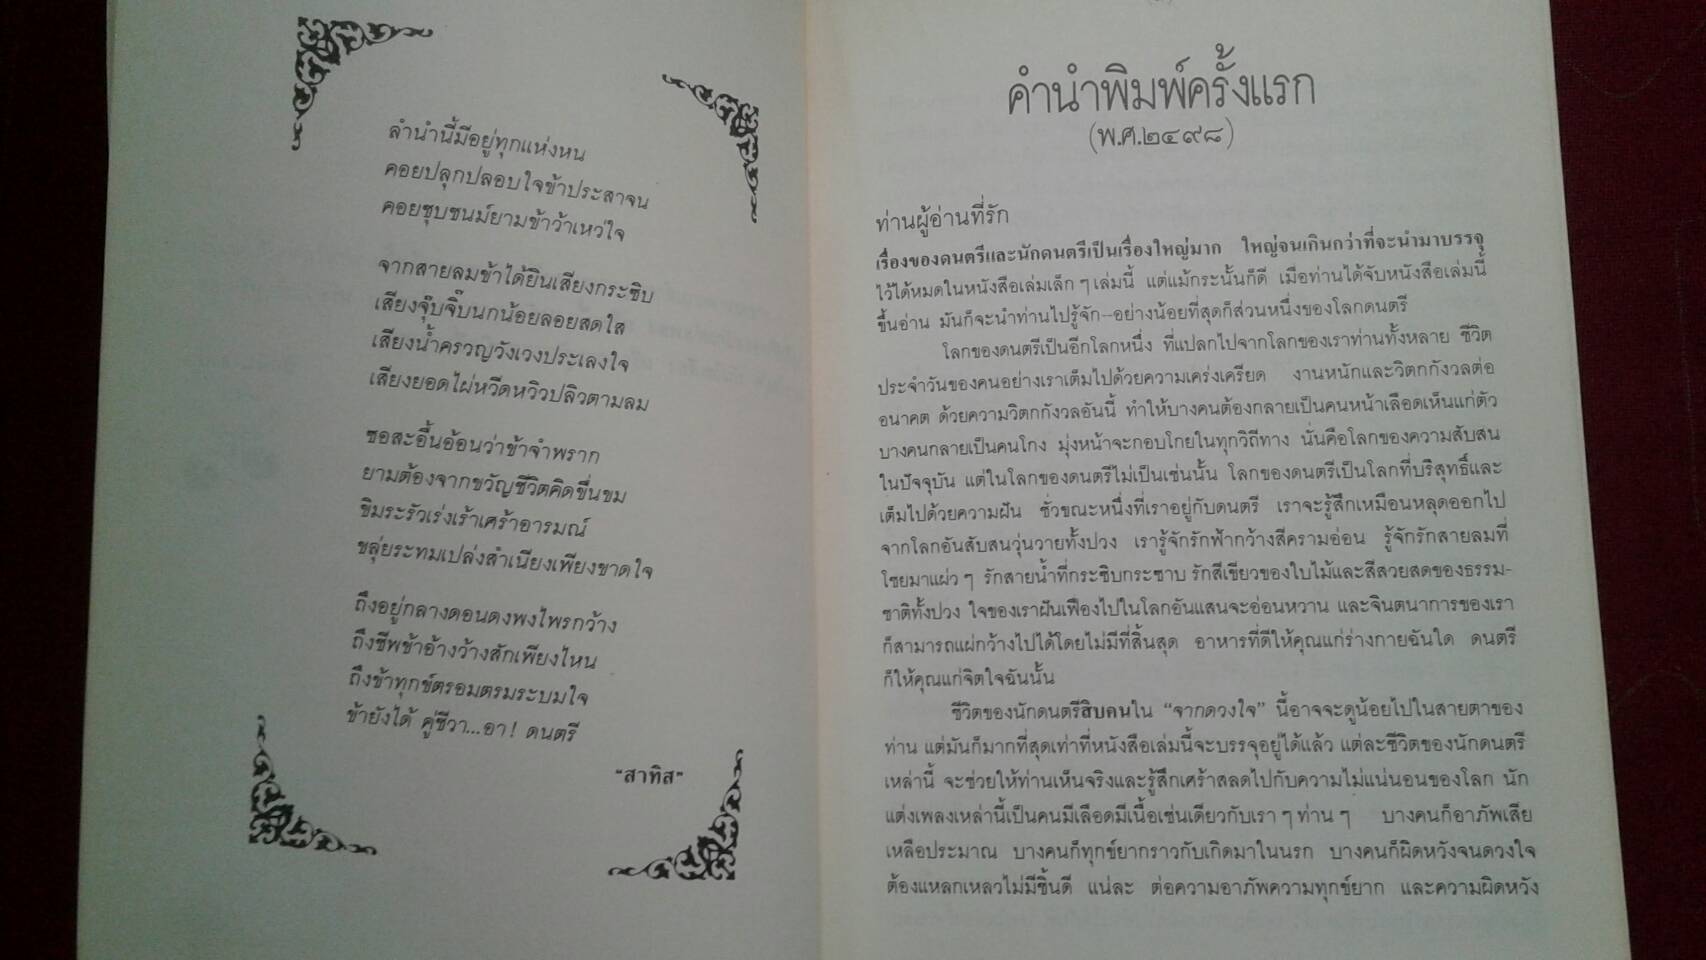 ลำนำนี้มีอยู่ทุกแห่งหน
คอยปลุกปลอบใจข้าประสาจน
คอยชุบชนม์ยามข้าว้าเหว่ใจ
จากสายลมข้าได้ยินเสียงกระซิบ
เสียงจุ๊บจิ๊บนกน้อยลอยสดใส
เสียงน้ำครวญวังเวงประเลงใจ
เสียงยอดไผ่หวีดหวิวปลิวตามลม
ซอสะอื้นอ้อนว่าข้าจำพราก
ยามต้องจากขวัญชีวิตคิดขื่นขม
ขิมระรัวเร่งเร้าเศร้าอารมณ์
ขลุ่ยระทมเปล่งสำเนียงเพียงขาดใจ
ถึงอยู่กลางดอนดงพงไพรกว้าง
ถึงชีพข้าอ้างว้างสักเพียงไหน
ถึงข้าทุกข์ตรอมตรมระบมใจ
ข้ายังได้ คู่ชีวา...อา! ดนตรี
"สาทิส"
คำนำพิมพ์ครั้งแรก
(พ.ศ.๒๔๙๘)
ท่านผู้อ่านที่รัก
เรื่องของดนตรีและนักดนตรีเป็นเรื่องใหญ่มาก ใหญ่จนเกินกว่าที่จะนำมาบรรจุ
ไว้ได้หมดในหนังสือเล่มเล็ก ๆ เล่มนี้ แต่แม้กระนั้นก็ดี เมื่อท่านได้จับหนังสือเล่มนี้
ขึ้นอ่าน มันก็จะนำท่านไปรู้จัก-อย่างน้อยที่สุดก็ส่วนหนึ่งของโลกดนตรี
โลกของดนตรีเป็นอีกโลกหนึ่ง ที่แปลกไปจากโลกของเราท่านทั้งหลาย ชีวิต
ประจำวันของคนอย่างเราเต็มไปด้วยความเคร่งเครียด งานหนักและวิตกกังวลต่อ
อนาคต ด้วยความวิตกกังวลอันนี้ ทำให้บางคนต้องกลายเป็นคนหน้าเลือดเห็นแก่ตัว
บางคนกลายเป็นคนโกง มุ่งหน้าจะกอบโกยในทุกวิถีทาง นั่นคือโลกของความสับสน
ในปัจจุบัน แต่ในโลกของดนตรีไม่เป็นเช่นนั้น โลกของดนตรีเป็นโลกที่บริสุทธิ์และ
เต็มไปด้วยความฝัน ชั่วขณะหนึ่งที่เราอยู่กับดนตรี เราจะรู้สึกเหมือนหลุดออกไป
จากโลกอันสับสนวุ่นวายทั้งปวง เรารู้จักรักฟ้ากว้างสีครามอ่อน รู้จักรักสายลมที่
โชยมาแผ่ว ๆ รักสายน้ำที่กระซิบกระซาบ รักสีเขียวของใบไม้และสีสวยสดของธรรม-
ชาติทั้งปวง ใจของเราฝันเฟืองไปในโลกอันแสนจะอ่อนหวาน และจินตนาการของเรา
ก็สามารถแผ่กว้างไปได้โดยไม่มีที่สิ้นสุด อาหารที่ดีให้คุณแก่ร่างกายฉันใด ดนตรี
ก็ให้คุณแก่จิตใจฉันนั้น
ชีวิตของนักดนตรีสิบคนใน "จากดวงใจ" นี้อาจจะดูน้อยไปในสายตาของ
ท่าน แต่มันก็มากที่สุดเท่าที่หนังสือเล่มนี้จะบรรจุอยู่ได้แล้ว แต่ละชีวิตของนักดนตรี
เหล่านี้ จะช่วยให้ท่านเห็นจริงและรู้สึกเศร้าสลดไปกับความไม่แน่นอนของโลก นัก
แต่งเพลงเหล่านี้เป็นคนมีเลือดมีเนื้อเช่นเดียวกับเรา ๆ ท่าน ๆ บางคนก็อาภัพเสีย
เหลือประมาณ บางคนก็ทุกข์ยากราวกับเกิดมาในนรก บางคนก็ผิดหวังจนดวงใจ
ต้องแหลกเหลวไม่มีชิ้นดี แน่ละ ต่อความอาภัพความทุกข์ยาก และความผิดหวัง